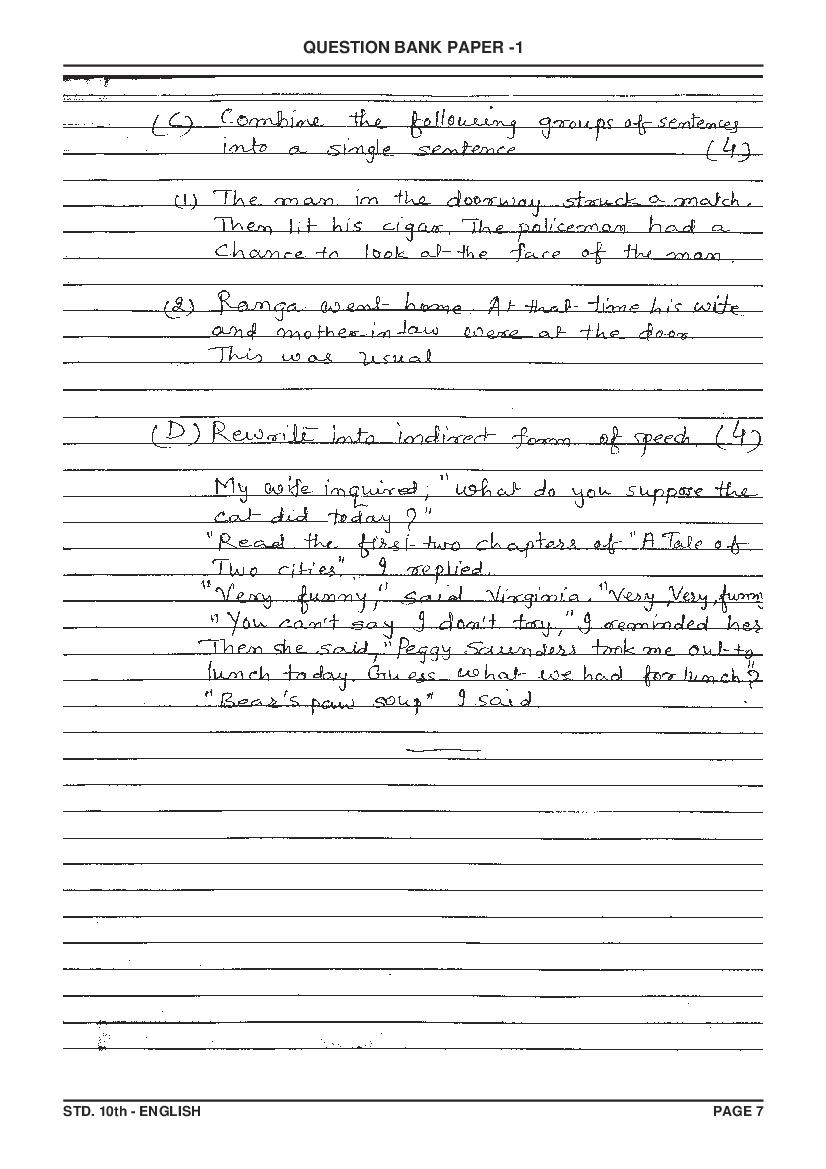 QUESTION BANK PAPER -1
(C) Combine the following groups of sentences
into a single sentence (4)
(1) The man in the doorway struck a match.
Then lit his cigar. The policeman had a
Chance to look at the face of the man.
(2) Ranga went home. At that time his wife
and mother in law were at the door.
This was usual
(D) Rewrite into indirect form of speech (4)
My wife inquired, "what do you suppose the
cat did today ?"
"Read the first two chapters of "A Tale of
Two cities". I replied.
"Very funny," said Virginia. "Very, Very, funny
"You can't say I don't try," I reminded her
Then she said, "Peggy Saunders took me out to
lunch today. Guess what we had for lunch?"
"Bear's paw soup" I said.
STD. 10th - ENGLISH PAGE 7